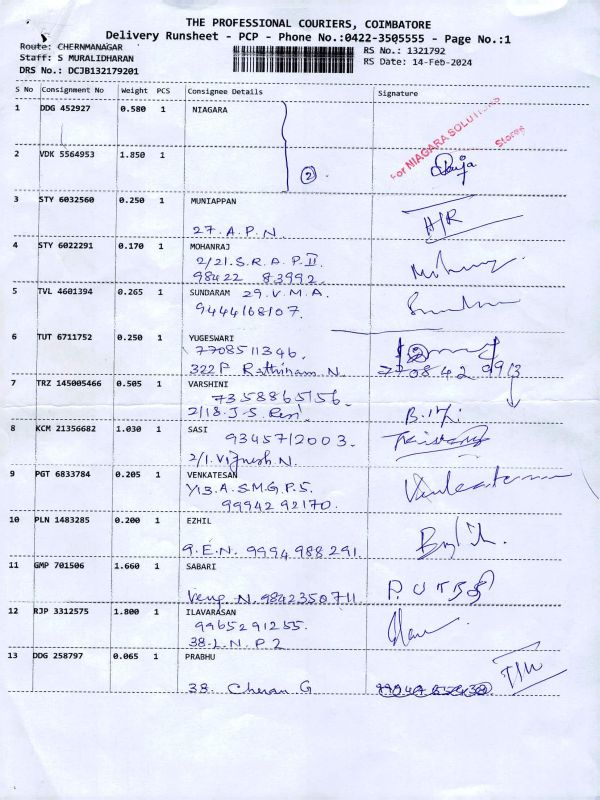 THE PROFESSIONAL COURIERS, COIMBATORE
Delivery Runsheet - PCP - Phone No.:0422-3505555 - Page No.:1
Route: CHERNMANAGAR
Staff: S MURALIDHARAN
DRS No.: DCJB132179201
RS No.: 1321792
RS Date: 14-Feb-2024
S No Consignment No Weight PCS Consignee Details Signature
1 DDG 452927 0.580 1 NIAGARA
For NIAGARA SOLUTIONS
Stores
2 VDK 5564953 1.850 1
2
3 STY 6032560 0.250 1 MUNIAPPAN
27. A. P. N. H/R
4 STY 6022291 0.170 1 MOHANRAJ
2/21. S. R. A. P. II
98422 83992.
5 TVL 4601394 0.265 1 SUNDARAM 29. V. M. A.
9444168107.
6 TUT 6711752 0.250 1 YUGESWARI
7708511346.
322 P Rathinam N.
7 TRZ 145005466 0.505 1 VARSHINI
7358865156.
2/18. J. S.
8 KCM 21356682 1.030 1 SASI
9345712003.
2/1. Vignesh N.
9 PGT 6833784 0.205 1 VENKATESAN
A. S. M. G. P. S.
9994292170.
10 PLN 1483285 0.200 1 EZHIL
9. E. N. 9994988291.
11 GMP 701506 1.660 1 SABARI
N. 9842350711.
12 RJP 3312575 1.800 1 ILAVARASAN
9965291255.
38. L. N. P. 2
13 DDG 258797 0.065 1 PRABHU
38. Cheran G